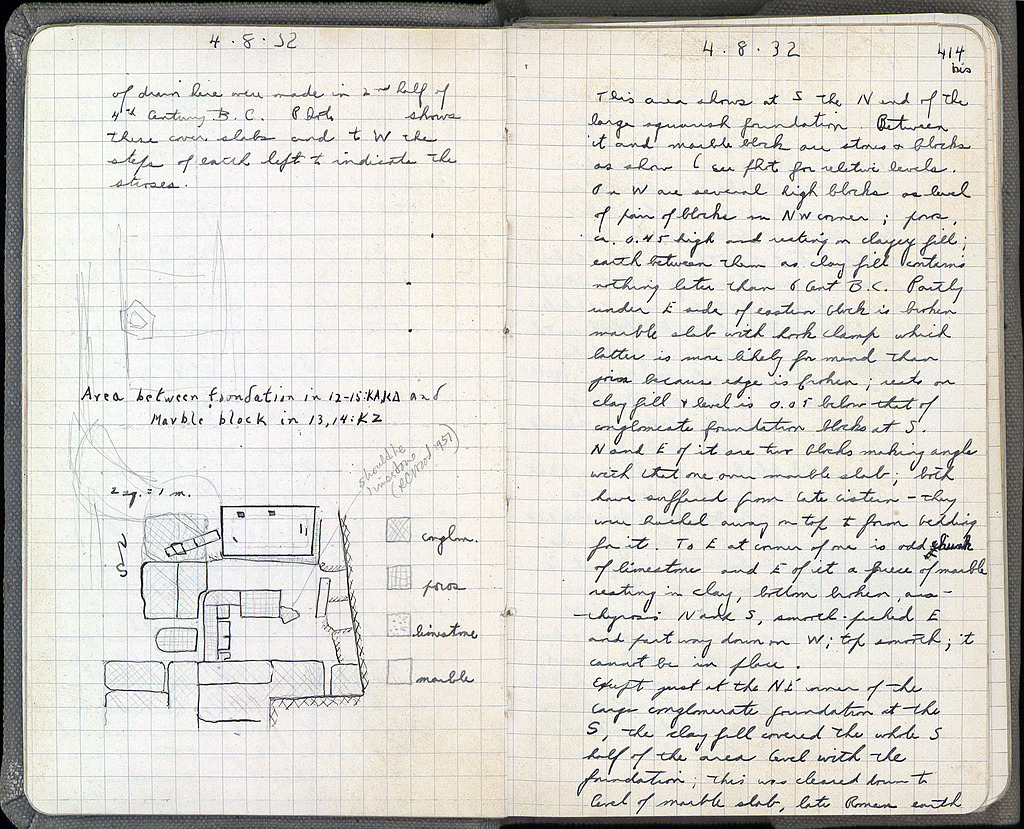 4 . 8 . 32
of drain here were made in 2nd half of
4th Century B. C. Phot. shows
these cover slabs and to W the
steps of earth left to indicate the
stroses.
Area between foundation in 12-15:KA,KΔ and
Marble block in 13,14:KZ
should be
limestone
1957)
2 sq. = 1 m.
conglom.
poros
limestone
marble
4 . 8 . 32
414
bis
This area shows at S the N end of the
large squarish foundation. Between
it and marble block are stones & blocks
as show (see phot for relative levels.
On W are several high blocks as level
of pair of blocks in NW corner; poros,
ca. 0.45 high and resting on clayey fill;
earth between them as clay fill contains
nothing later than 6 Cent B.C. Partly
under E side of eastern block is broken
marble slab with hook clamp which
latter is more likely for mend than
join because edge is broken; rests on
clay fill & level is 0.05 below that of
conglomerate foundation blocks at S.
N and E of it are two blocks making angle
with that one over marble slab; both
have suffered from late cistern - they
were hacked away on top to form bedding
for it. To E at corner of one is odd chunk
of limestone and E of it a piece of marble
resting in clay, bottom broken, ana-
-thyrosis N and S, smooth-picked E
and part way down on W; top smooth; it
cannot be in place.
Except just at the NE corner of the
large conglomerate foundation at the
S, the clay fill covered the whole S
half of the area level with the
foundation; this was cleared down to
level of marble slab, late Roman earth